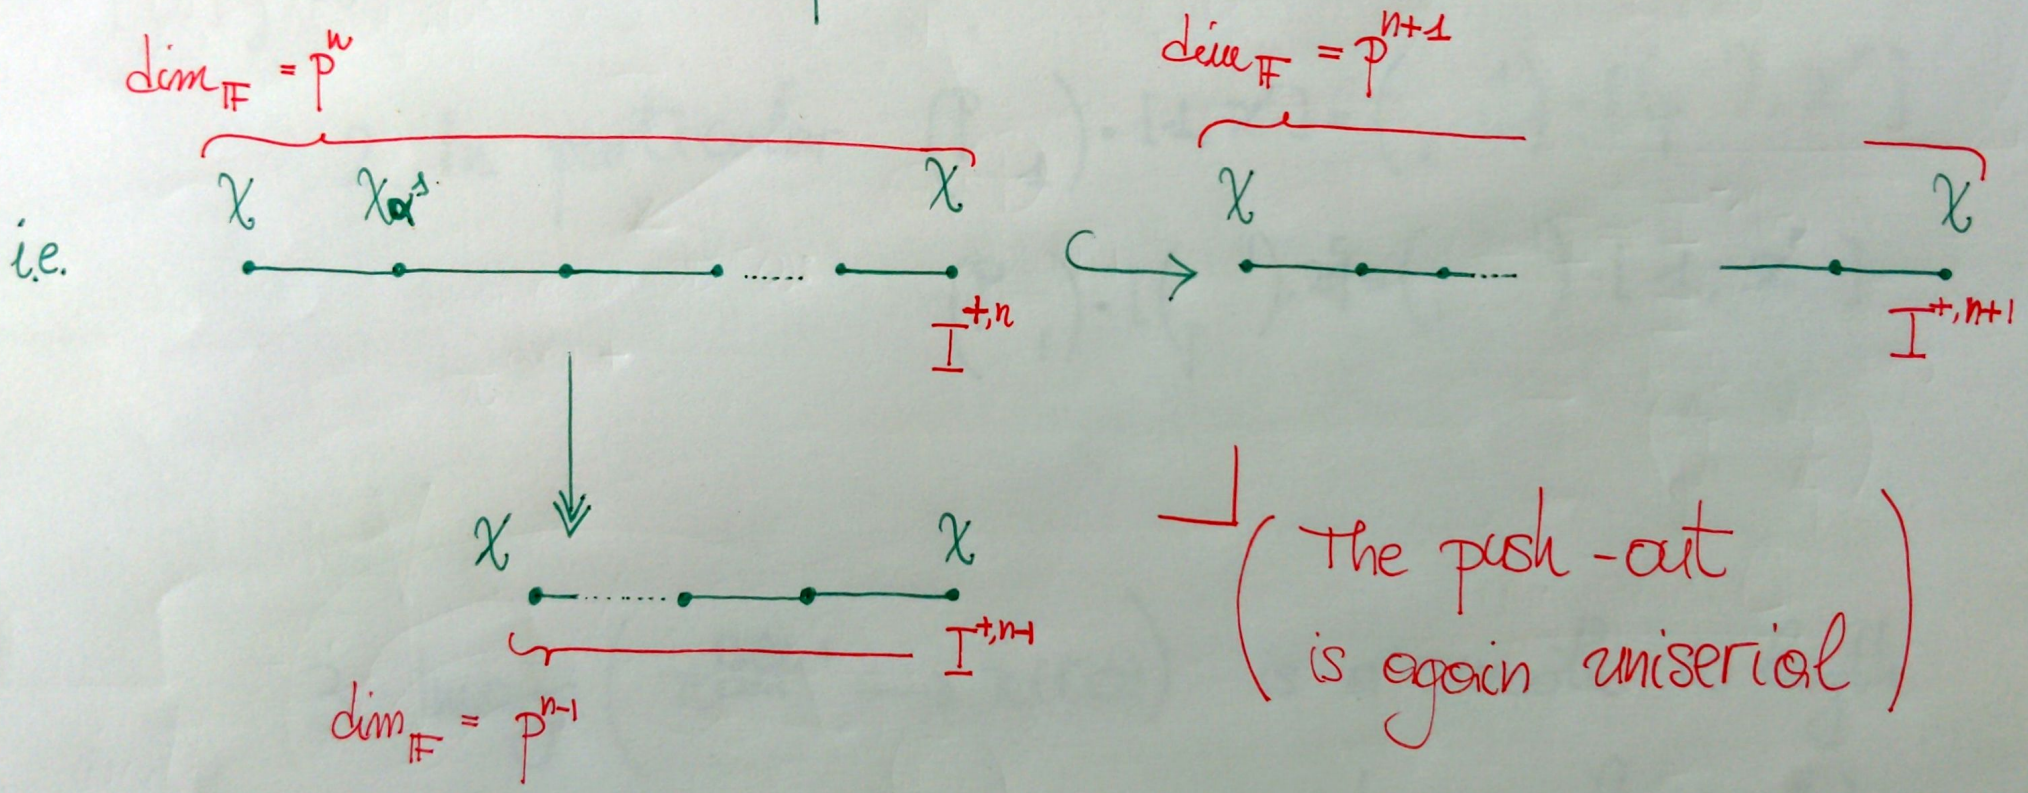 dim_𝔽 = p^n
dim_𝔽 = p^{n+1}
χ χα^s χ
χ χ
i.e.
......
....
I^{+,n}
I^{+,n+1}
χ χ
........
I^{+,n-1}
dim_𝔽 = p^{n-1}
( The push-out
is again uniserial )